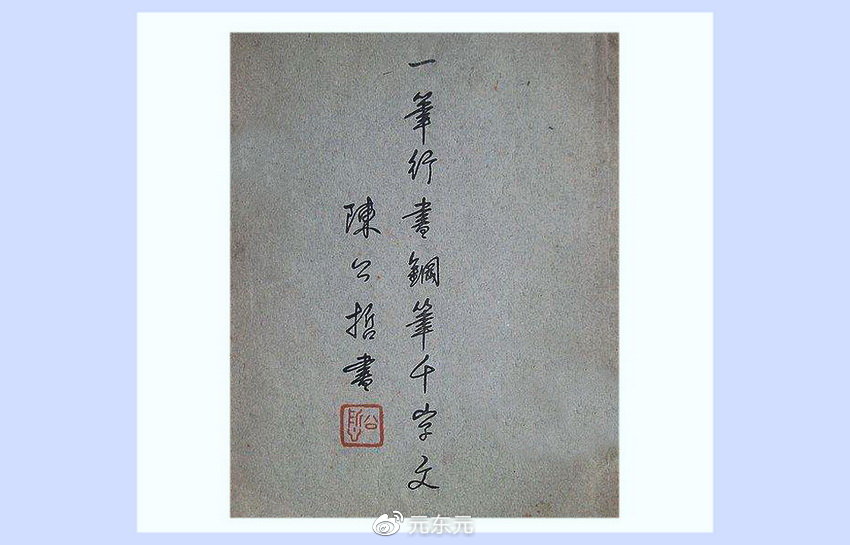 一筆行書鋼筆千字文
陳公哲書
元东元